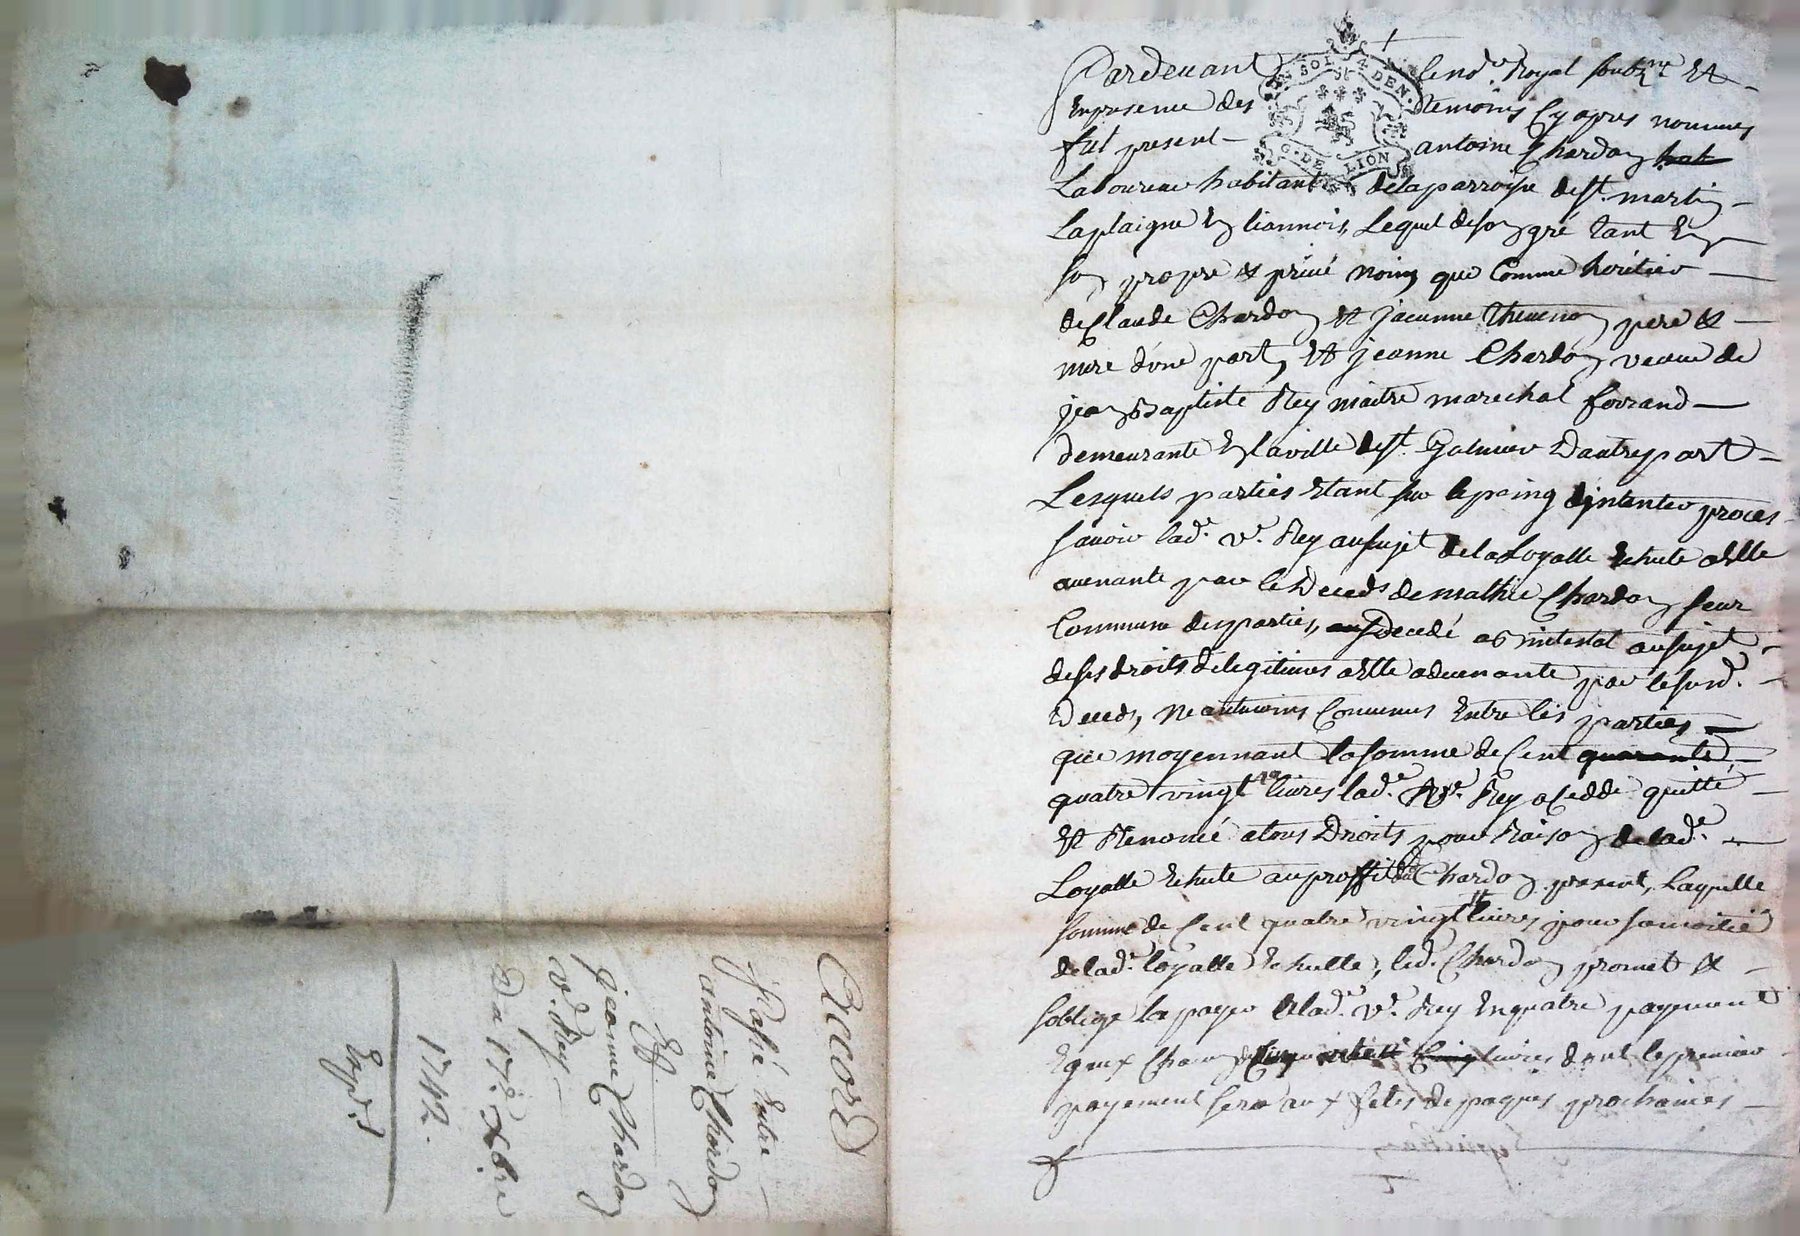 Accord
Passé Entre
antoine Chardon
Et
jeanne Chardon
ve. Rey
Du 17e Xbre
1742.
Expd.
SOL 4 DEN.
G. DE LION
Pardevant le no.re Royal soubz.né Et
En presence des temoins Cy apres nommes
fut present antoine Chardon
Laboureur habitant de la parroisse de st. martin
Laplaigne En lionnois, Lequel de son gré tant En
son propre & privé nom que Comme heritier
de Claude Chardon Et jeanne Thevenon pere &
mere d'une part, Et jeanne Chardon veuve de
jean Baptiste Rey maitre marechal ferrand
demeurante En la ville de st. Galmier D'autre part
Lesquels parties Etant sur le poing d'intenter proces
savoir lad.e ve. Rey au sujet de la Loyalle Echute a Elle
avenante par le Deceds de mathie Chardon seur
Commune des parties, decedé ab intestat au sujet
de ses droits de legitimes a Elle advenante par le susd.
Deceds, Neantmoins Convenus Entre les parties
que moyennant la somme de Cent quarante
quatre vingt livres lad.e ve. Rey a Cedde quitté
Et Renoncé a tous Droits pour Raison de lad.e
Loyalle Echute au proffit dud. Chardon present, Laquelle
somme de Cent quatre vingt livres pour sa moitié
de lad.e loyalle Echutte, led. Chardon promet &
s'oblige La payer a lad.e ve. Rey En quatre payement
Egaux Chacun de livres dont le premier
payement sera aux fetes de paques prochaines